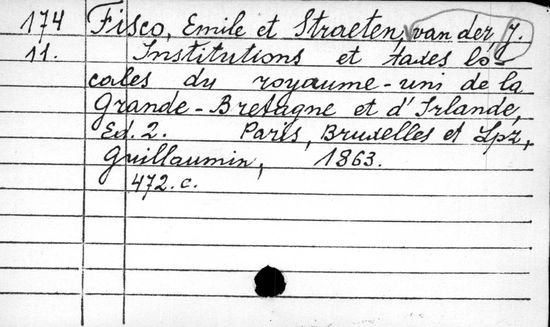 174 Fisco, Emile et Straeten, van der J.
11. Institutions et taxes lo-
cales du royaume-uni de la
Grande-Bretagne et d'Irlande,
Ed. 2. Paris, Bruxelles et Lpz,
Guillaumin, 1863.
472.c.